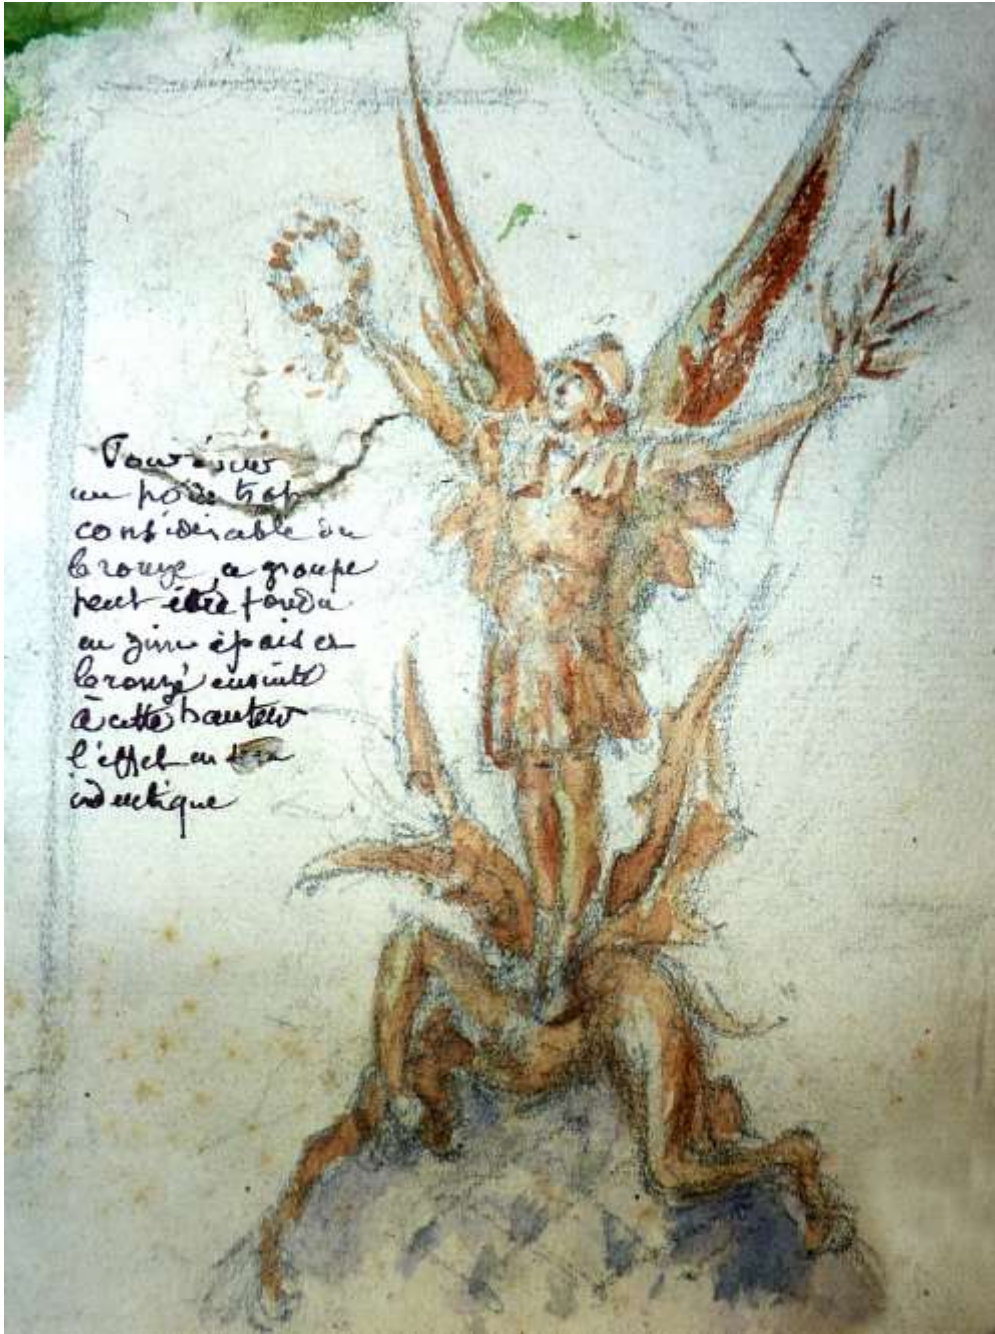 Pour éviter
un poids trop
considérable en
bronze, ce groupe
peut être fondu
en zinc épais et
bronzé ensuite
à cette hauteur
l'effet en sera
identique